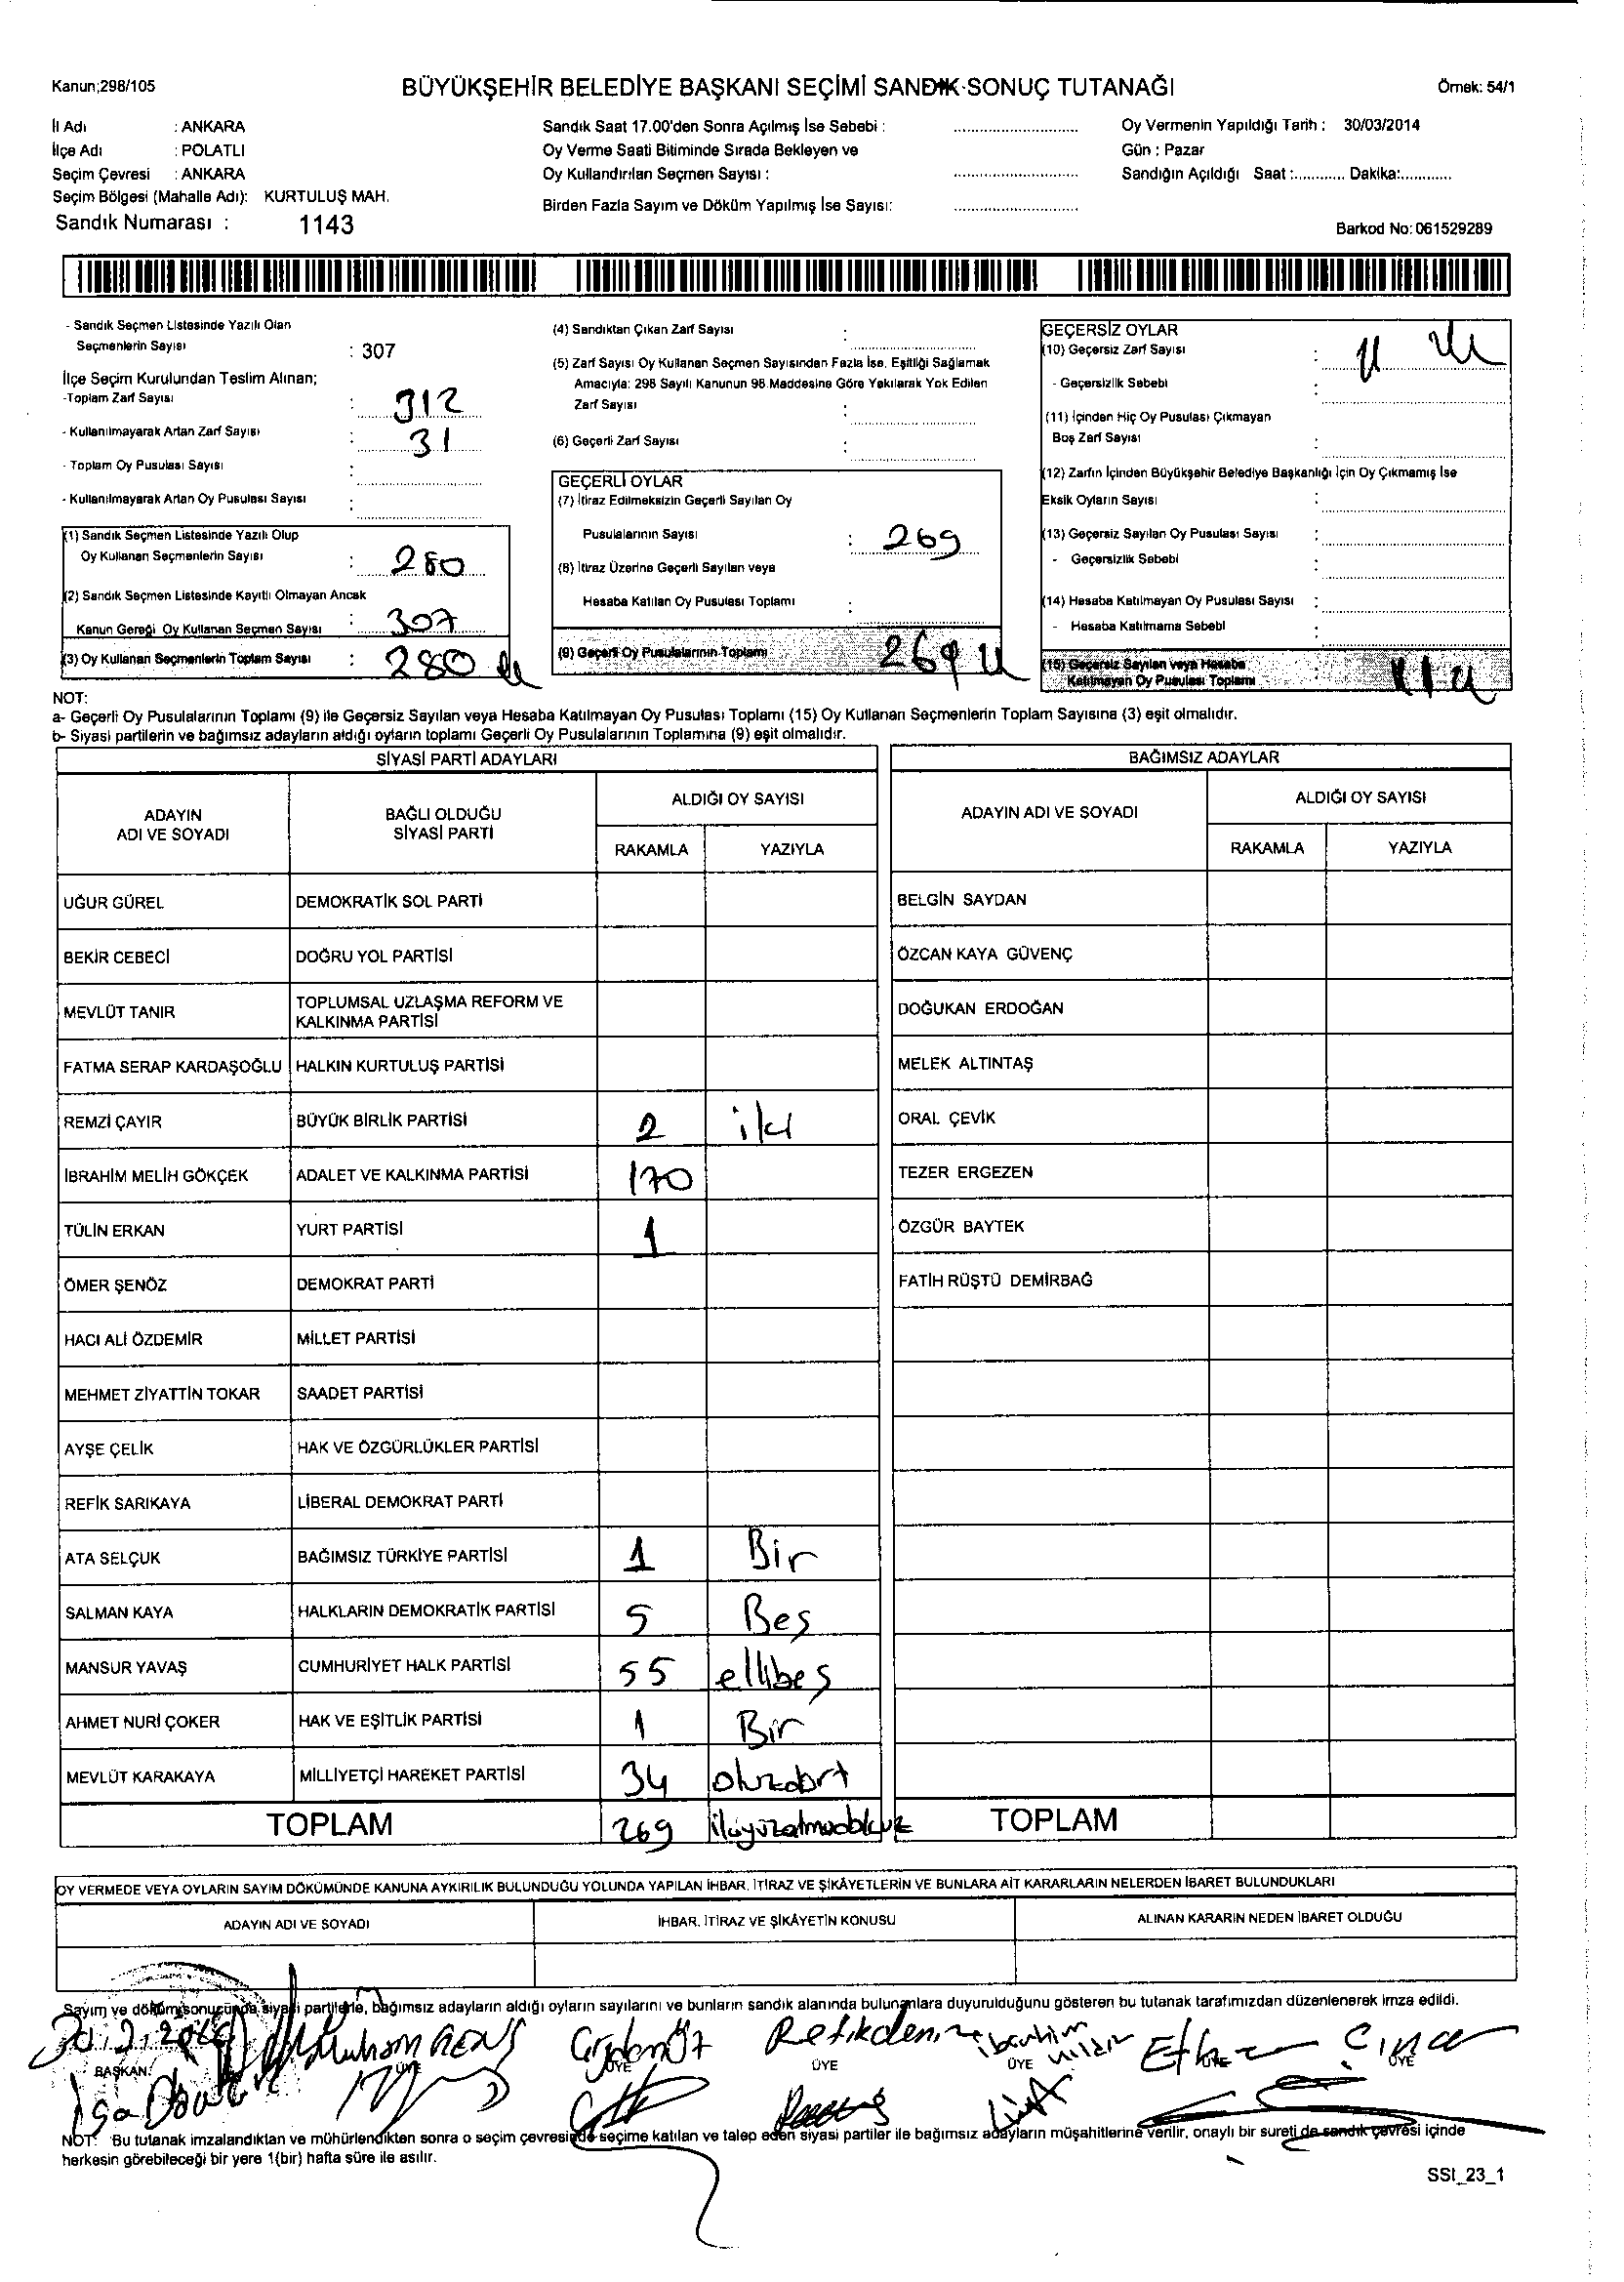 Kanun;298/105
BÜYÜKŞEHİR BELEDİYE BAŞKANI SEÇİMİ SANDIK SONUÇ TUTANAĞI
Örnek: 54/1
İl Adı : ANKARA
İlçe Adı : POLATLI
Seçim Çevresi : ANKARA
Seçim Bölgesi (Mahalle Adı): KURTULUŞ MAH.
Sandık Numarası : 1143
Sandık Saat 17.00'den Sonra Açılmış İse Sebebi :
Oy Verme Saati Bitiminde Sırada Bekleyen ve
Oy Kullandırılan Seçmen Sayısı :
Birden Fazla Sayım ve Döküm Yapılmış İse Sayısı:
Oy Vermenin Yapıldığı Tarih : 30/03/2014
Gün : Pazar
Sandığın Açıldığı Saat :............ Dakika:............
Barkod No: 061529289
- Sandık Seçmen Listesinde Yazılı Olan
Seçmenlerin Sayısı : 307
İlçe Seçim Kurulundan Teslim Alınan;
-Toplam Zarf Sayısı : 312
- Kullanılmayarak Artan Zarf Sayısı : 31
- Toplam Oy Pusulası Sayısı :
- Kullanılmayarak Artan Oy Pusulası Sayısı :
(1) Sandık Seçmen Listesinde Yazılı Olup
Oy Kullanan Seçmenlerin Sayısı : 280
(2) Sandık Seçmen Listesinde Kayıtlı Olmayan Ancak
Kanun Gereği Oy Kullanan Seçmen Sayısı : 307
(3) Oy Kullanan Seçmenlerin Toplam Sayısı : 280
(4) Sandıktan Çıkan Zarf Sayısı :
(5) Zarf Sayısı Oy Kullanan Seçmen Sayısından Fazla İse, Eşitliği Sağlamak
Amacıyla: 298 Sayılı Kanunun 98.Maddesine Göre Yakılarak Yok Edilen
Zarf Sayısı :
(6) Geçerli Zarf Sayısı :
GEÇERLİ OYLAR
(7) İtiraz Edilmeksizin Geçerli Sayılan Oy
Pusulalarının Sayısı : 269
(8) İtiraz Üzerine Geçerli Sayılan veya
Hesaba Katılan Oy Pusulası Toplamı :
(9) Geçerli Oy Pusulalarının Toplamı 269
GEÇERSİZ OYLAR
(10) Geçersiz Zarf Sayısı : 11
- Geçersizlik Sebebi :
(11) İçinden Hiç Oy Pusulası Çıkmayan
Boş Zarf Sayısı :
(12) Zarfın İçinden Büyükşehir Belediye Başkanlığı İçin Oy Çıkmamış İse
Eksik Oyların Sayısı :
(13) Geçersiz Sayılan Oy Pusulası Sayısı :
- Geçersizlik Sebebi :
(14) Hesaba Katılmayan Oy Pusulası Sayısı :
- Hesaba Katılmama Sebebi :
(15) Geçersiz Sayılan veya Hesaba
Katılmayan Oy Pusulası Toplamı : 11
NOT:
a- Geçerli Oy Pusulalarının Toplamı (9) ile Geçersiz Sayılan veya Hesaba Katılmayan Oy Pusulası Toplamı (15) Oy Kullanan Seçmenlerin Toplam Sayısına (3) eşit olmalıdır.
b- Siyasi partilerin ve bağımsız adayların aldığı oyların toplamı Geçerli Oy Pusulalarının Toplamına (9) eşit olmalıdır.
SİYASİ PARTİ ADAYLARI
ADAYIN ADI VE SOYADI
BAĞLI OLDUĞU SİYASİ PARTİ
ALDIĞI OY SAYISI
RAKAMLA YAZIYLA
UĞUR GÜREL DEMOKRATİK SOL PARTİ
BEKİR CEBECİ DOĞRU YOL PARTİSİ
MEVLÜT TANIR TOPLUMSAL UZLAŞMA REFORM VE KALKINMA PARTİSİ
FATMA SERAP KARDAŞOĞLU HALKIN KURTULUŞ PARTİSİ
REMZİ ÇAYIR BÜYÜK BİRLİK PARTİSİ 2 iki
İBRAHİM MELİH GÖKÇEK ADALET VE KALKINMA PARTİSİ 170
TÜLİN ERKAN YURT PARTİSİ 1
ÖMER ŞENÖZ DEMOKRAT PARTİ
HACI ALİ ÖZDEMİR MİLLET PARTİSİ
MEHMET ZİYATTİN TOKAR SAADET PARTİSİ
AYŞE ÇELİK HAK VE ÖZGÜRLÜKLER PARTİSİ
REFİK SARIKAYA LİBERAL DEMOKRAT PARTİ
ATA SELÇUK BAĞIMSIZ TÜRKİYE PARTİSİ 1 Bir
SALMAN KAYA HALKLARIN DEMOKRATİK PARTİSİ 5 Beş
MANSUR YAVAŞ CUMHURİYET HALK PARTİSİ 55 ellibeş
AHMET NURİ ÇOKER HAK VE EŞİTLİK PARTİSİ 1 Bir
MEVLÜT KARAKAYA MİLLİYETÇİ HAREKET PARTİSİ 34 otuzdört
TOPLAM 269
BAĞIMSIZ ADAYLAR
ADAYIN ADI VE SOYADI
ALDIĞI OY SAYISI
RAKAMLA YAZIYLA
BELGİN SAYDAN
ÖZCAN KAYA GÜVENÇ
DOĞUKAN ERDOĞAN
MELEK ALTINTAŞ
ORAL ÇEVİK
TEZER ERGEZEN
ÖZGÜR BAYTEK
FATİH RÜŞTÜ DEMİRBAĞ
TOPLAM
OY VERMEDE VEYA OYLARIN SAYIM DÖKÜMÜNDE KANUNA AYKIRILIK BULUNDUĞU YOLUNDA YAPILAN İHBAR, İTİRAZ VE ŞİKÂYETLERİN VE BUNLARA AİT KARARLARIN NELERDEN İBARET BULUNDUKLARI
ADAYIN ADI VE SOYADI
İHBAR, İTİRAZ VE ŞİKÂYETİN KONUSU
ALINAN KARARIN NEDEN İBARET OLDUĞU
Sayım ve döküm sonucunda siyasi partilerle, bağımsız adayların aldığı oyların sayılarını ve bunların sandık alanında bulunanlara duyurulduğunu gösteren bu tutanak tarafımızdan düzenlenerek imza edildi.
Refik deniz ibrahim
BAŞKAN ÜYE ÜYE ÜYE ÜYE ÜYE
NOT: Bu tutanak imzalandıktan ve mühürlendikten sonra o seçim çevresinde seçime katılan ve talep eden siyasi partiler ile bağımsız adayların müşahitlerine verilir, onaylı bir sureti de sandık çevresi içinde
herkesin görebileceği bir yere 1(bir) hafta süre ile asılır.
SSI_23_1